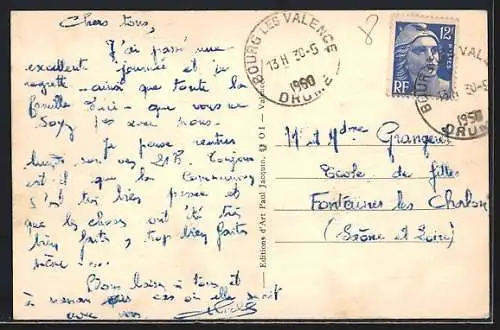 Chers tous,
J'ai passé une
excellente journée et je
regrette - ainsi que toute la
famille que vous ne
soyez pas avec nous.
Je pense rentrer
lundi soir vers 21h. Toujours
est-il que la Communion
s'est très bien passée et
que les choses ont été très
bien faites, trop bien faites
même - ...
Bons baisers à tous et
à maman au cas où elle serait
avec vous.
Editions d'Art Paul Jacquin,
8
BOURG LES VALENCE
13H 30-5
1950
DROME
12F
POSTES
RF
BOURG VALENCE
13H 30-5
1950
DROME
Mr et Mme Granger
Ecole de filles
Fontaines les Chalon
(Saône et Loire)